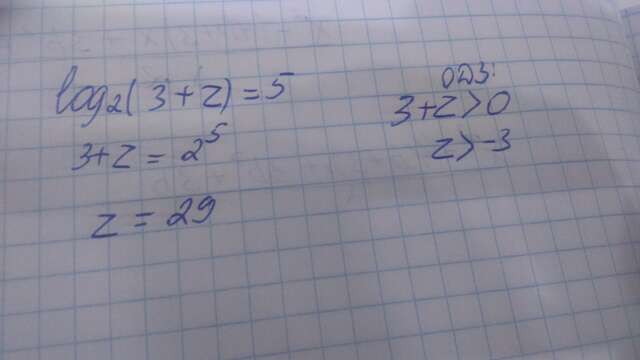 log₂(3+z)=5
3+z=2⁵
z=29
ОДЗ:
3+z>0
z>-3